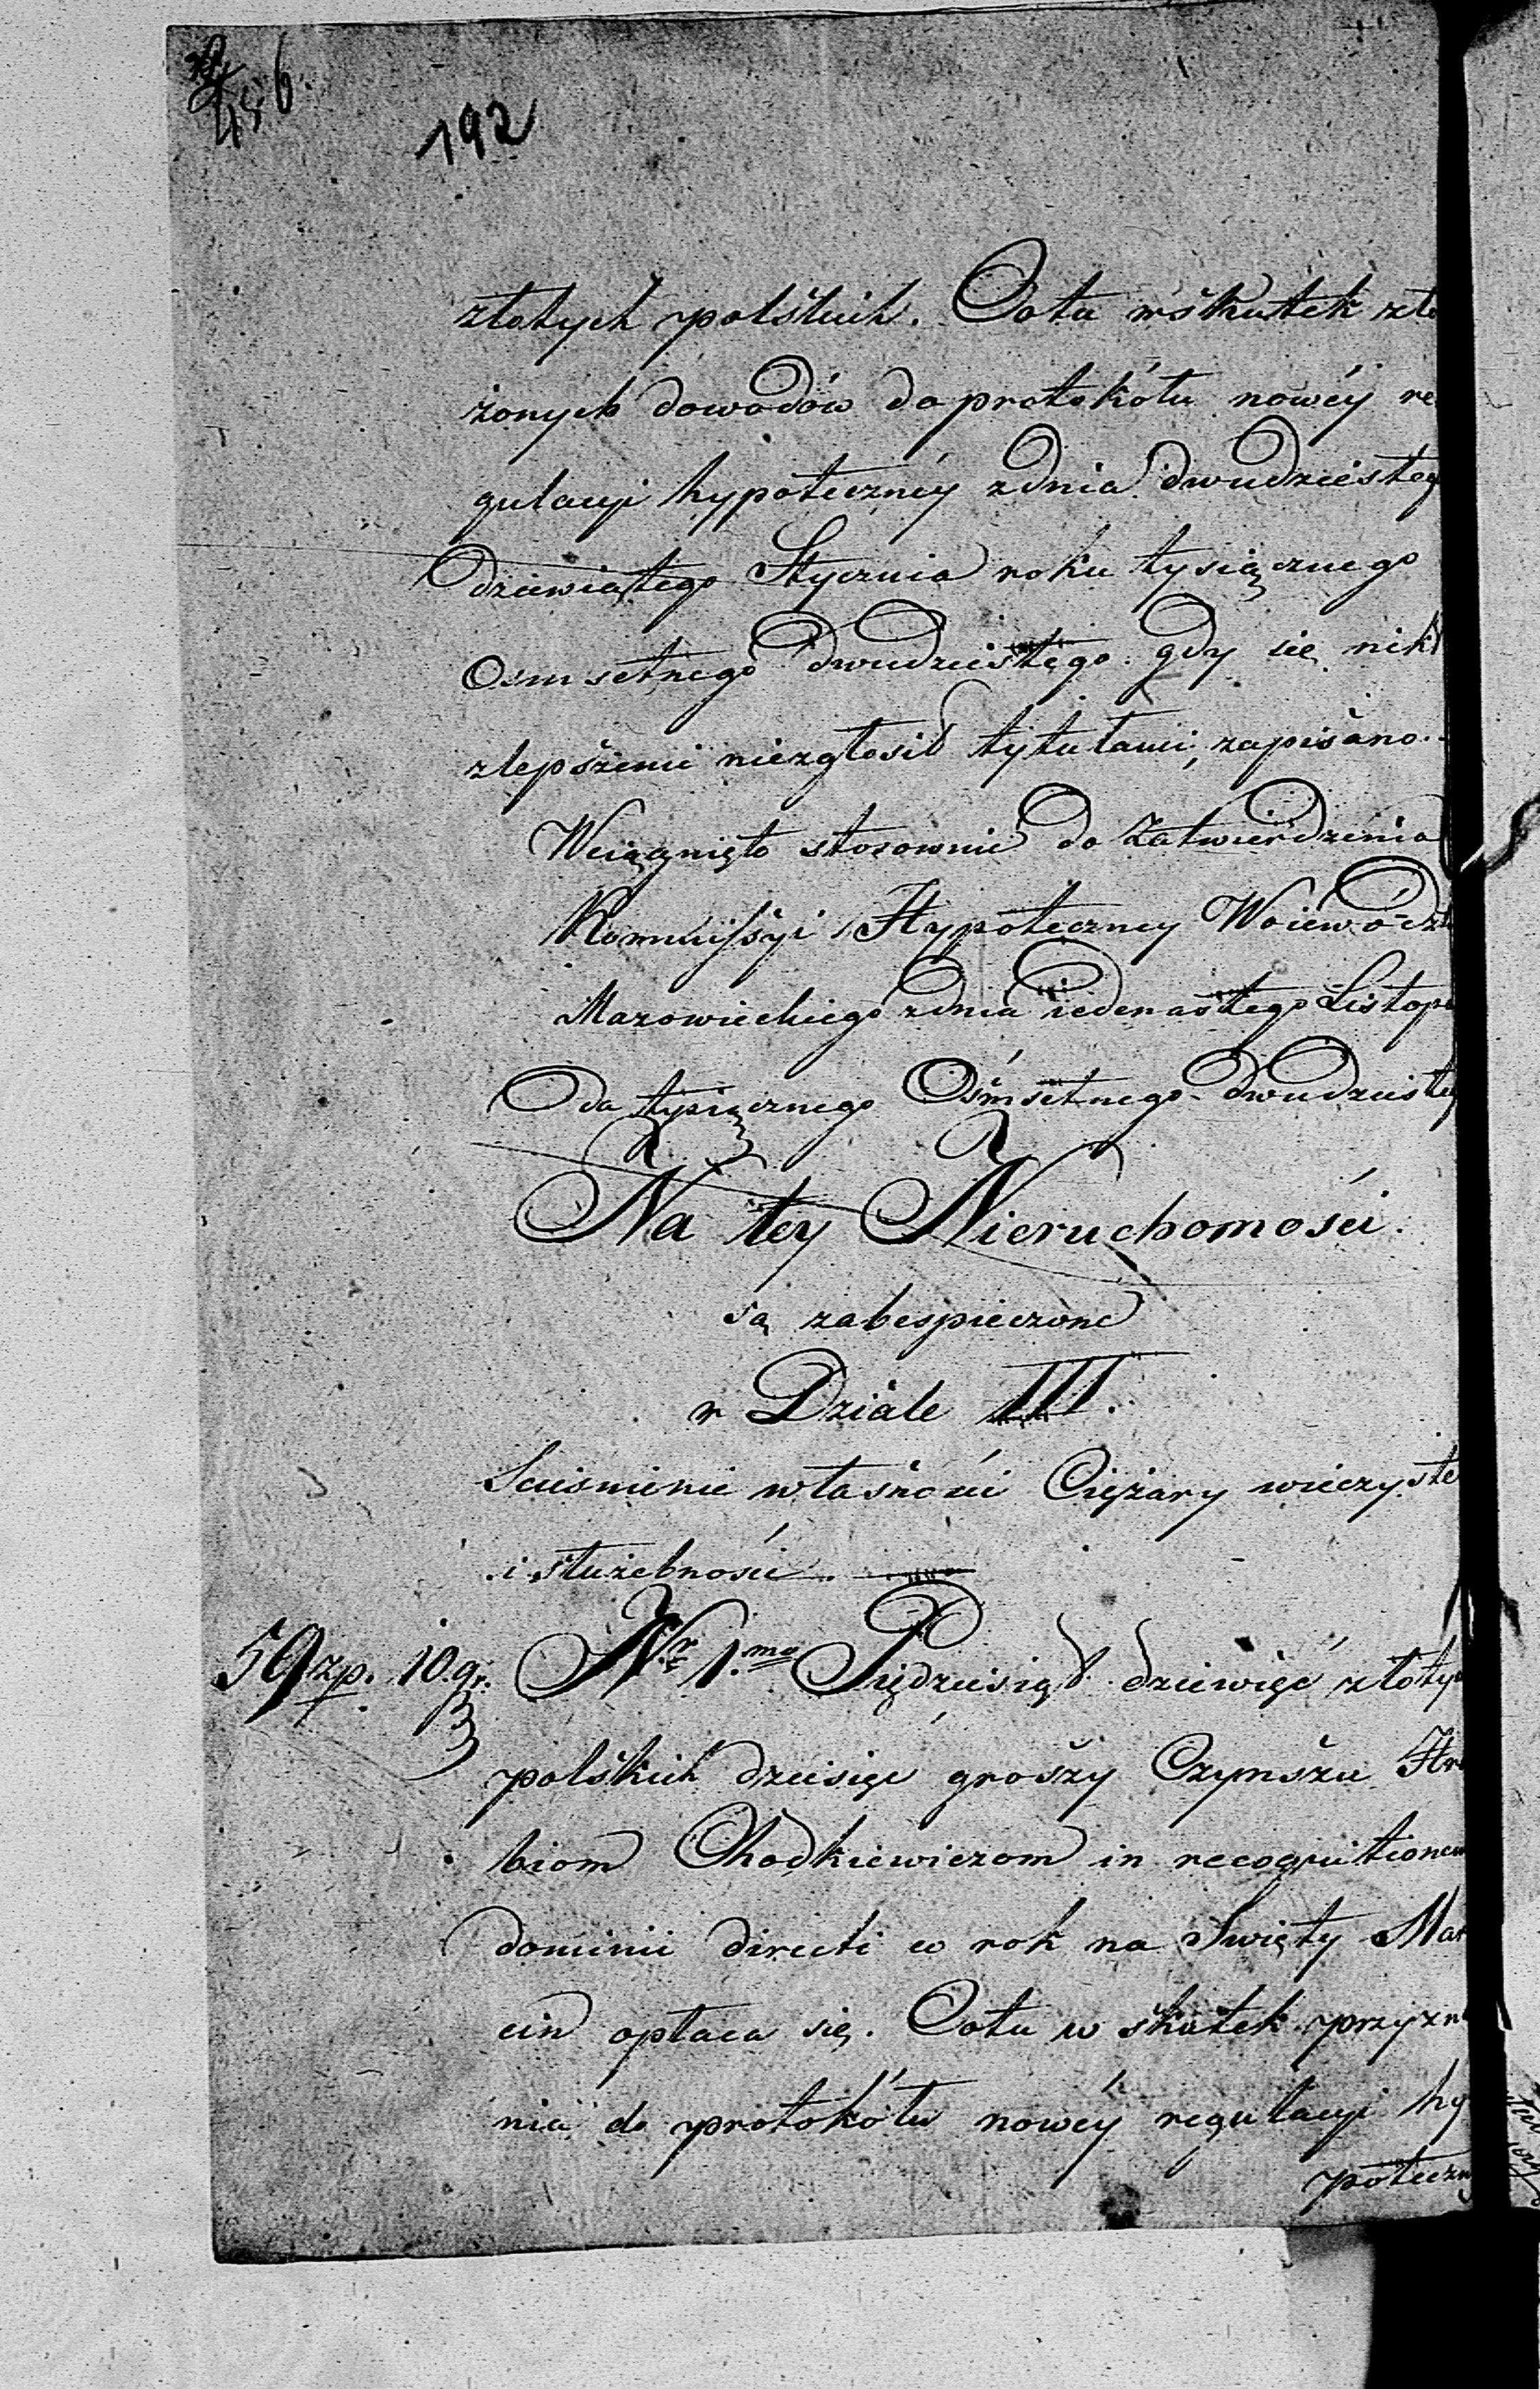 456.
192
złotych polskich. Cotu wskutek zło
żonych dowodów do protokółu nowéy re
gulacyi hypoteczney zdnia dwudziesteg
dziewiątego Stycznia roku tysiącznego
Osmsetnego dwudziestego gdy się nikt
zlepszemi niezgłosił tytułami, zapisano.
Wciągnięto stosownie do Zatwierdzenia
Kommissyi Hypoteczney Woiewódz
Mazowieckiego zdnia iedenastego Listopa
da tysiącznego Ośmsetnego dwudzieste
Na tey Nieruchomości.
są zabespieczone
w Dziale III.
Scieśnienie własności Ciężary wieczyste
i służebności.
59 zp. 10. gr. Nr 1.mo Pięćdziesiąt dziewięć złoty
polskich dziesięć groszy Czynszu Hra
biom Chodkiewiczom in recognitionem
dominii directi co rok na Swięty Mar
cin opłaca się. Cotu w skutek przyzna
nia do protokółu nowéy regulacyi hy
poteczn